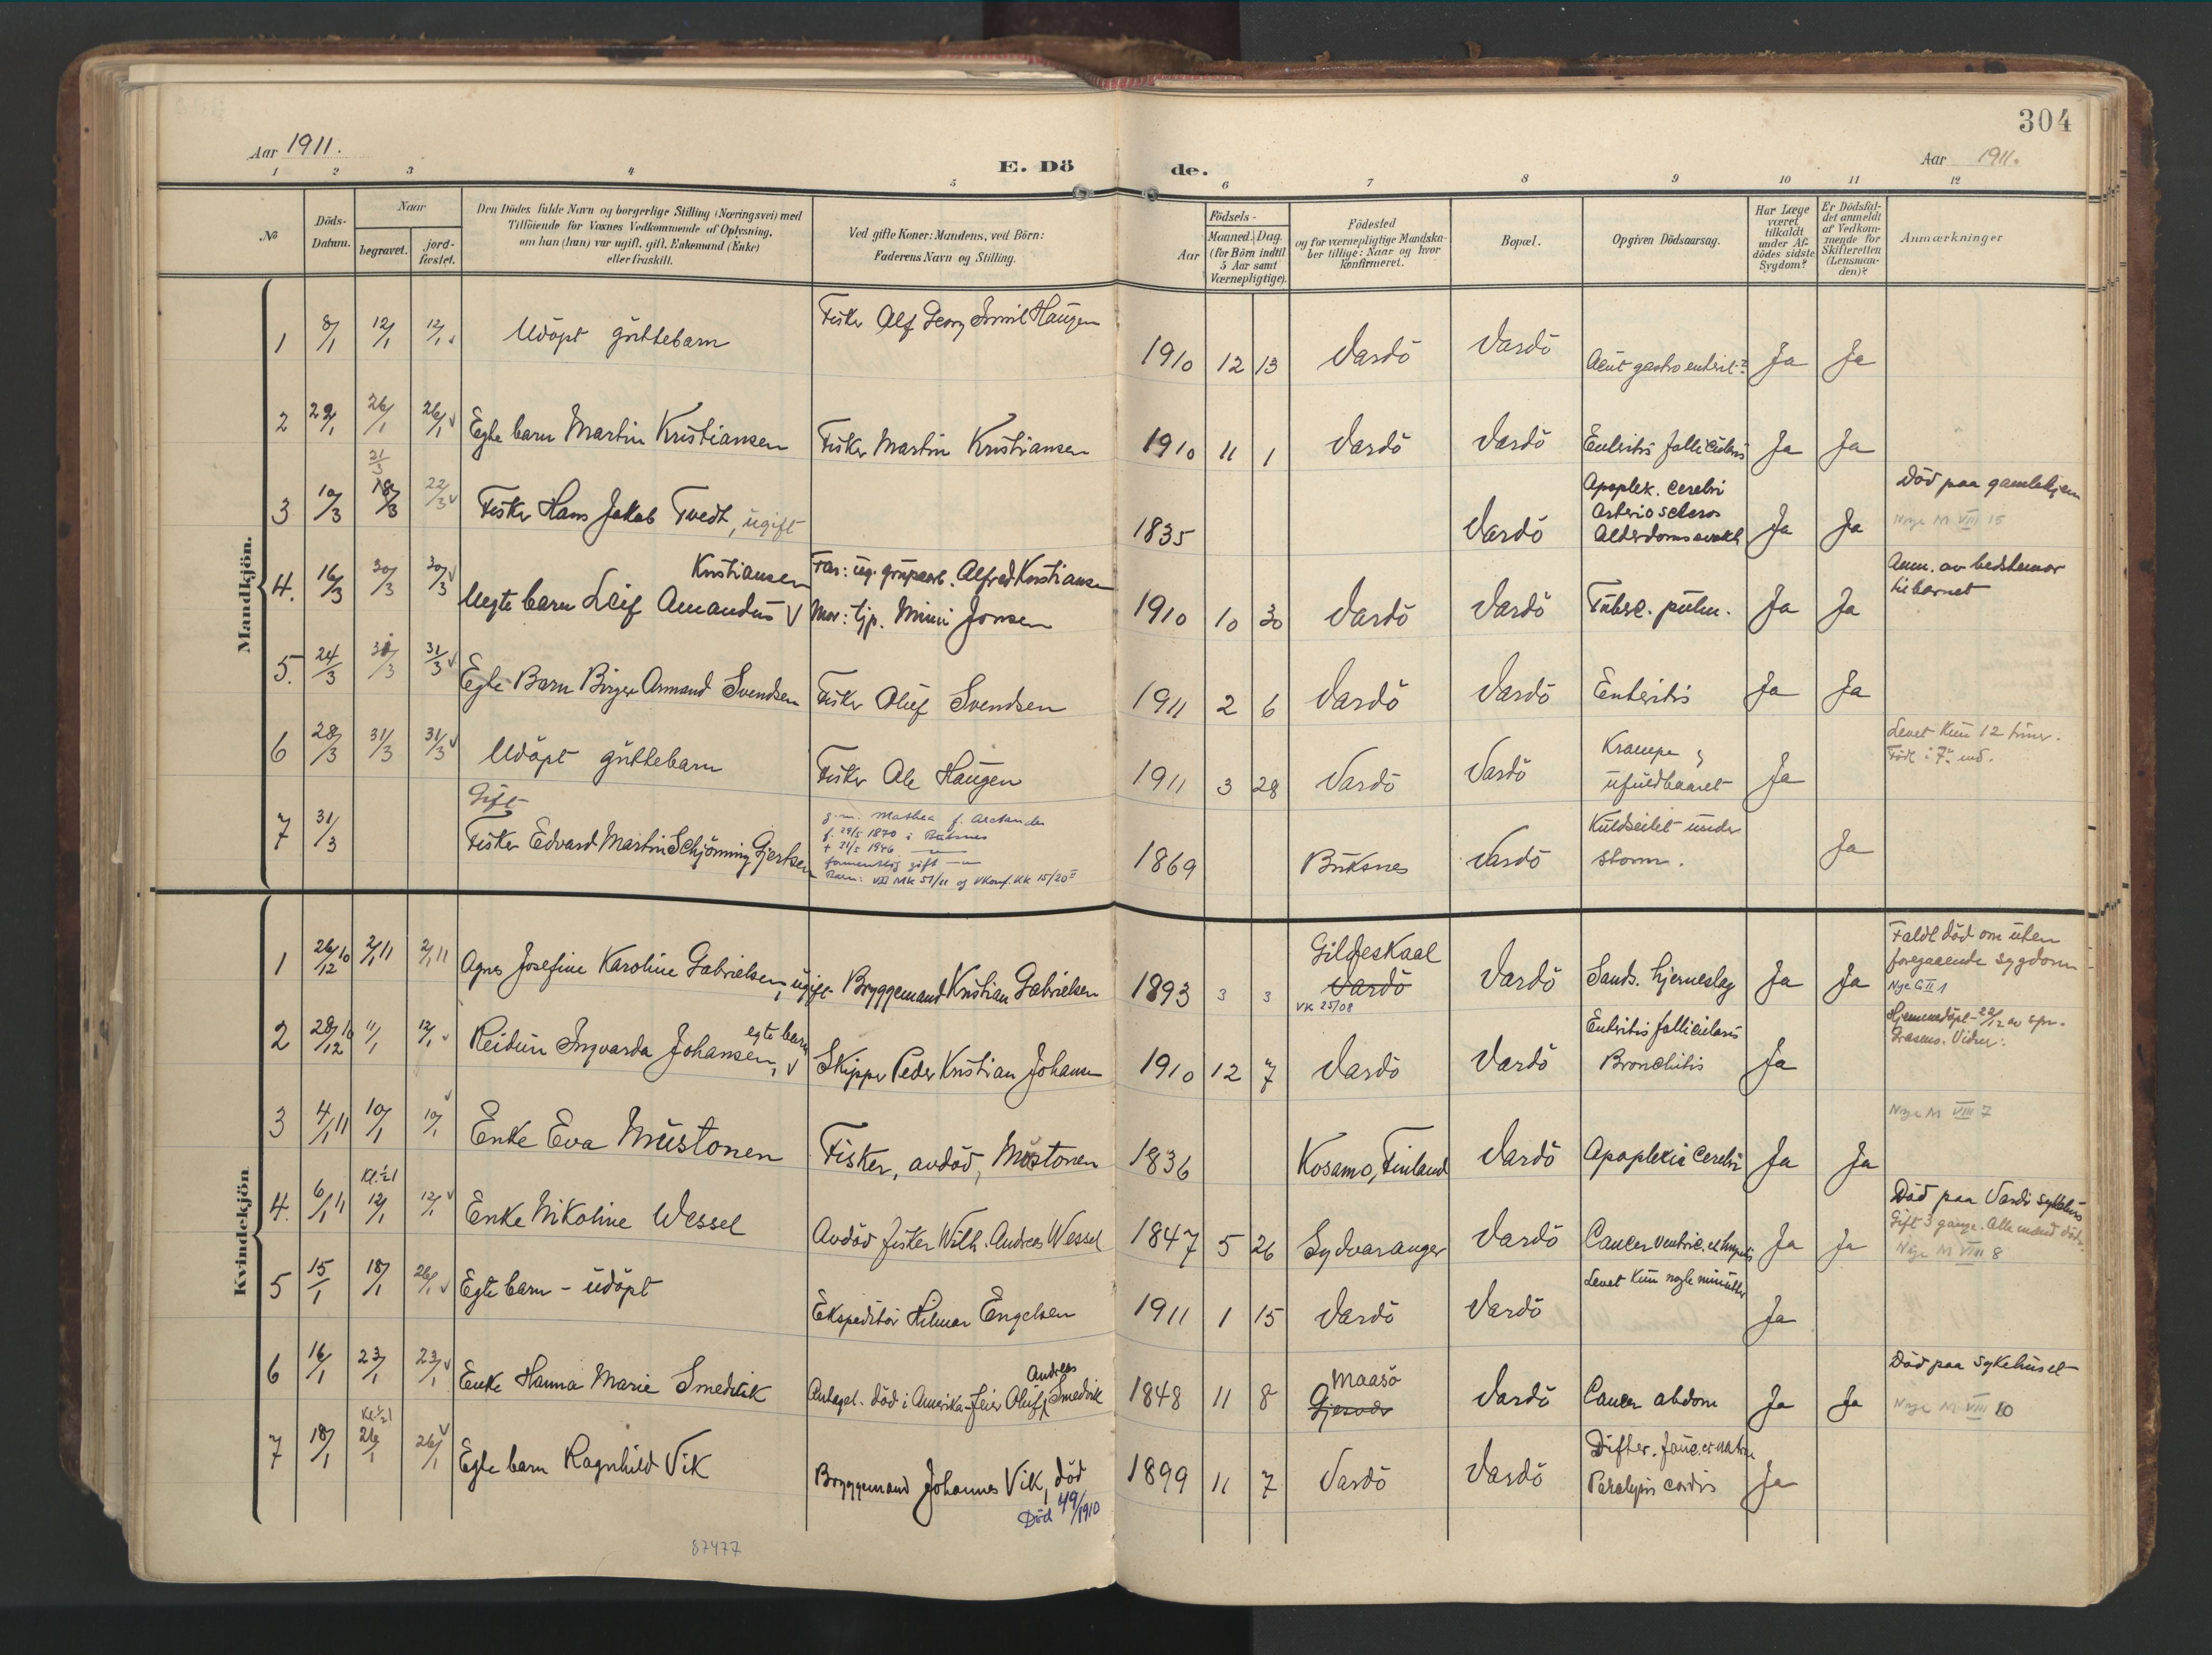 304
Aar 1911.
E. Dö
de.
Aar 1911.
1 2 3 4 5 6 7 8 9 10 11 12
No
Döds-
Datum.
Naar
begravet.
jord-
fæstet.
Den Dödes fulde Navn og borgerlige Stilling (Næringsvei) med
Tilföiende for Voxnes Vedkommende af Oplysning,
om han (hun) var ugift, gift, Enkemand (Enke)
eller fraskilt.
Ved gifte Koner: Mandens, ved Börn:
Faderens Navn og Stilling.
Aar
Födsels-
Maaned. Dag.
(for Börn indtil
5 Aar samt
Værnepligtige).
Födested
og for værnepligtige Mandska-
ber tillige: Naar og hvor
Konfirmeret.
Bopæl.
Opgiven Dödsaarsag.
Har Læge
været
tilkaldt
under Af-
dödes sidste
Sygdom?
Er Dödsfal-
det anmeldt
af Vedkom-
mende for
Skifteretten
(Lensman-
den)?
Anmærkninger
Mandkjön.
1 8/1 12/1 12/1 Udöpt guttebarn Fisker Alf Georg Emil Haugen 1910 12 13 Vardö Vardö Acut gastroenterit? Ja Ja
2 22/1 26/1 26/1 Egte barn Martin Kristiansen Fisker Martin Kristiansen 1910 11 1 Vardö Vardö Enteritis follicularis Ja Ja
21/3
3 10/3 18/3 22/3 Fisker Hans Jakob Tvedt, ugift 1835 Vardö Apoplex. cerebri
Arterioscleros
Alderdomssvakh Ja Ja Död paa gamlehjem
Noje M VIII 15
4. 16/3 30/3 30/3 Uegte barn Leif Amandus Kristiansen Far: ug. grupearb. Alfred Kristiansen
Mor: tjp. Mimi Jonsen 1910 10 30 Vardö Vardö Tuberc. pulm. Ja Ja Anm. av bedstemor
til barnet
5. 24/3 31/3 31/3 Egte Barn Birger Armand Svendsen Fisker Oluf Svendsen 1911 2 6 Vardö Vardö Enteritis Ja Ja
6 28/3 31/3 31/3 Udöpt guttebarn Fisker Ole Haugen 1911 3 28 Vardö Vardö Krampe
ufuldbaaret Ja Levet kun 12 timer.
Föd i 7. md.
Gift
7 31/3 Fisker Edvard Martin Schjönning Gjertsen g.m. Mathea f. Arctander
f. 29/5 1870 i Buksnes
+ 31/5 1946
gift
Barn: VII MK 51/11 og VKonf. KK 15/20 1869 Buksnes Vardö Kuldseilet under
storm. Ja
Kvindekjön
1 26/12 10 2/1 11 2/1 11 Agnes Josefine Karoline Gabrielsen, ugift Bryggemand Kristian Gabrielsen 1893 3 3 Gildeskaal
Vardö
VK 25/08 Vardö Sands. hjerneslag Ja Ja Faldt död om uten
foregaaende sygdom
Noje G II 1
2 28/12 10 11/1 12/1 Reidun Ingvarda Johansen, egte barn Skipper Peder Kristian Johansen 1910 12 7 Vardö Vardö Enteritis follicularis
Bronchitis Ja Hjemmedöpt 22/12 av spr.
3 4/1 11 10/1 10/1 Enke Eva Mustonen Fisker, avdöd, Mustonen 1836 Kosamo, Finland Vardö Apoplexia cerebri Ja Ja Noje M VIII 7
Kl. ½1
4. 6/1 11 12/1 12/1 Enke Nikoline Wessel Avdöd fisker Wilh. Andreas Wessel 1847 5 26 Sydvaranger Vardö Cancer ventric. et hepatis Ja Ja Död paa Vardö sykehus
Gift 3 gange. Alle mænd döde.
Noje M VIII 8
5 15/1 18/1 26/1 Egte barn - udöpt Ekspeditör Hilmar Engelsen 1911 1 15 Vardö Vardö Levet kun nogle minutter Ja
6 16/1 23/1 23/1 Enke Hanna Marie Smedvik Antagel. död i Amerika - feier Oluf Andreas Smedvik 1848 11 8 Maasö
Gjesvær Vardö Cancer abdom Ja Ja Död paa sykehuset
Noje M VIII 10
Kl. ½1
7 18/1 26/1 26/1 Egte barn Ragnhild Vik Bryggemand Johannes Vik, död
Död 4/9 1910 1899 11 7 Vardö Vardö Difter. fauc. et
Paralysis cordis Ja
87477